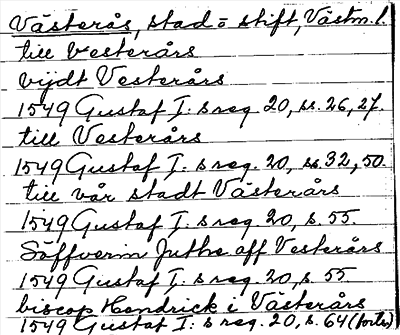 Västerås, stad o stift, Västm. l.
till Vesterårs
vijdt Vesterårs
1549 Gustaf I:s reg. 20, ss. 26, 27.
till Vesterårs
1549 Gustaf I:s reg. 20, ss. 32, 50.
till vår stadt Västerårs
1549 Gustaf I:s reg. 20, s. 55.
Söffverin Juthe aff Vesterårs
1549 Gustaf I:s reg. 20, s. 55
biscop Hendrick i Västerårs
1549 Gustaf I:s reg. 20, s. 64 (forts)